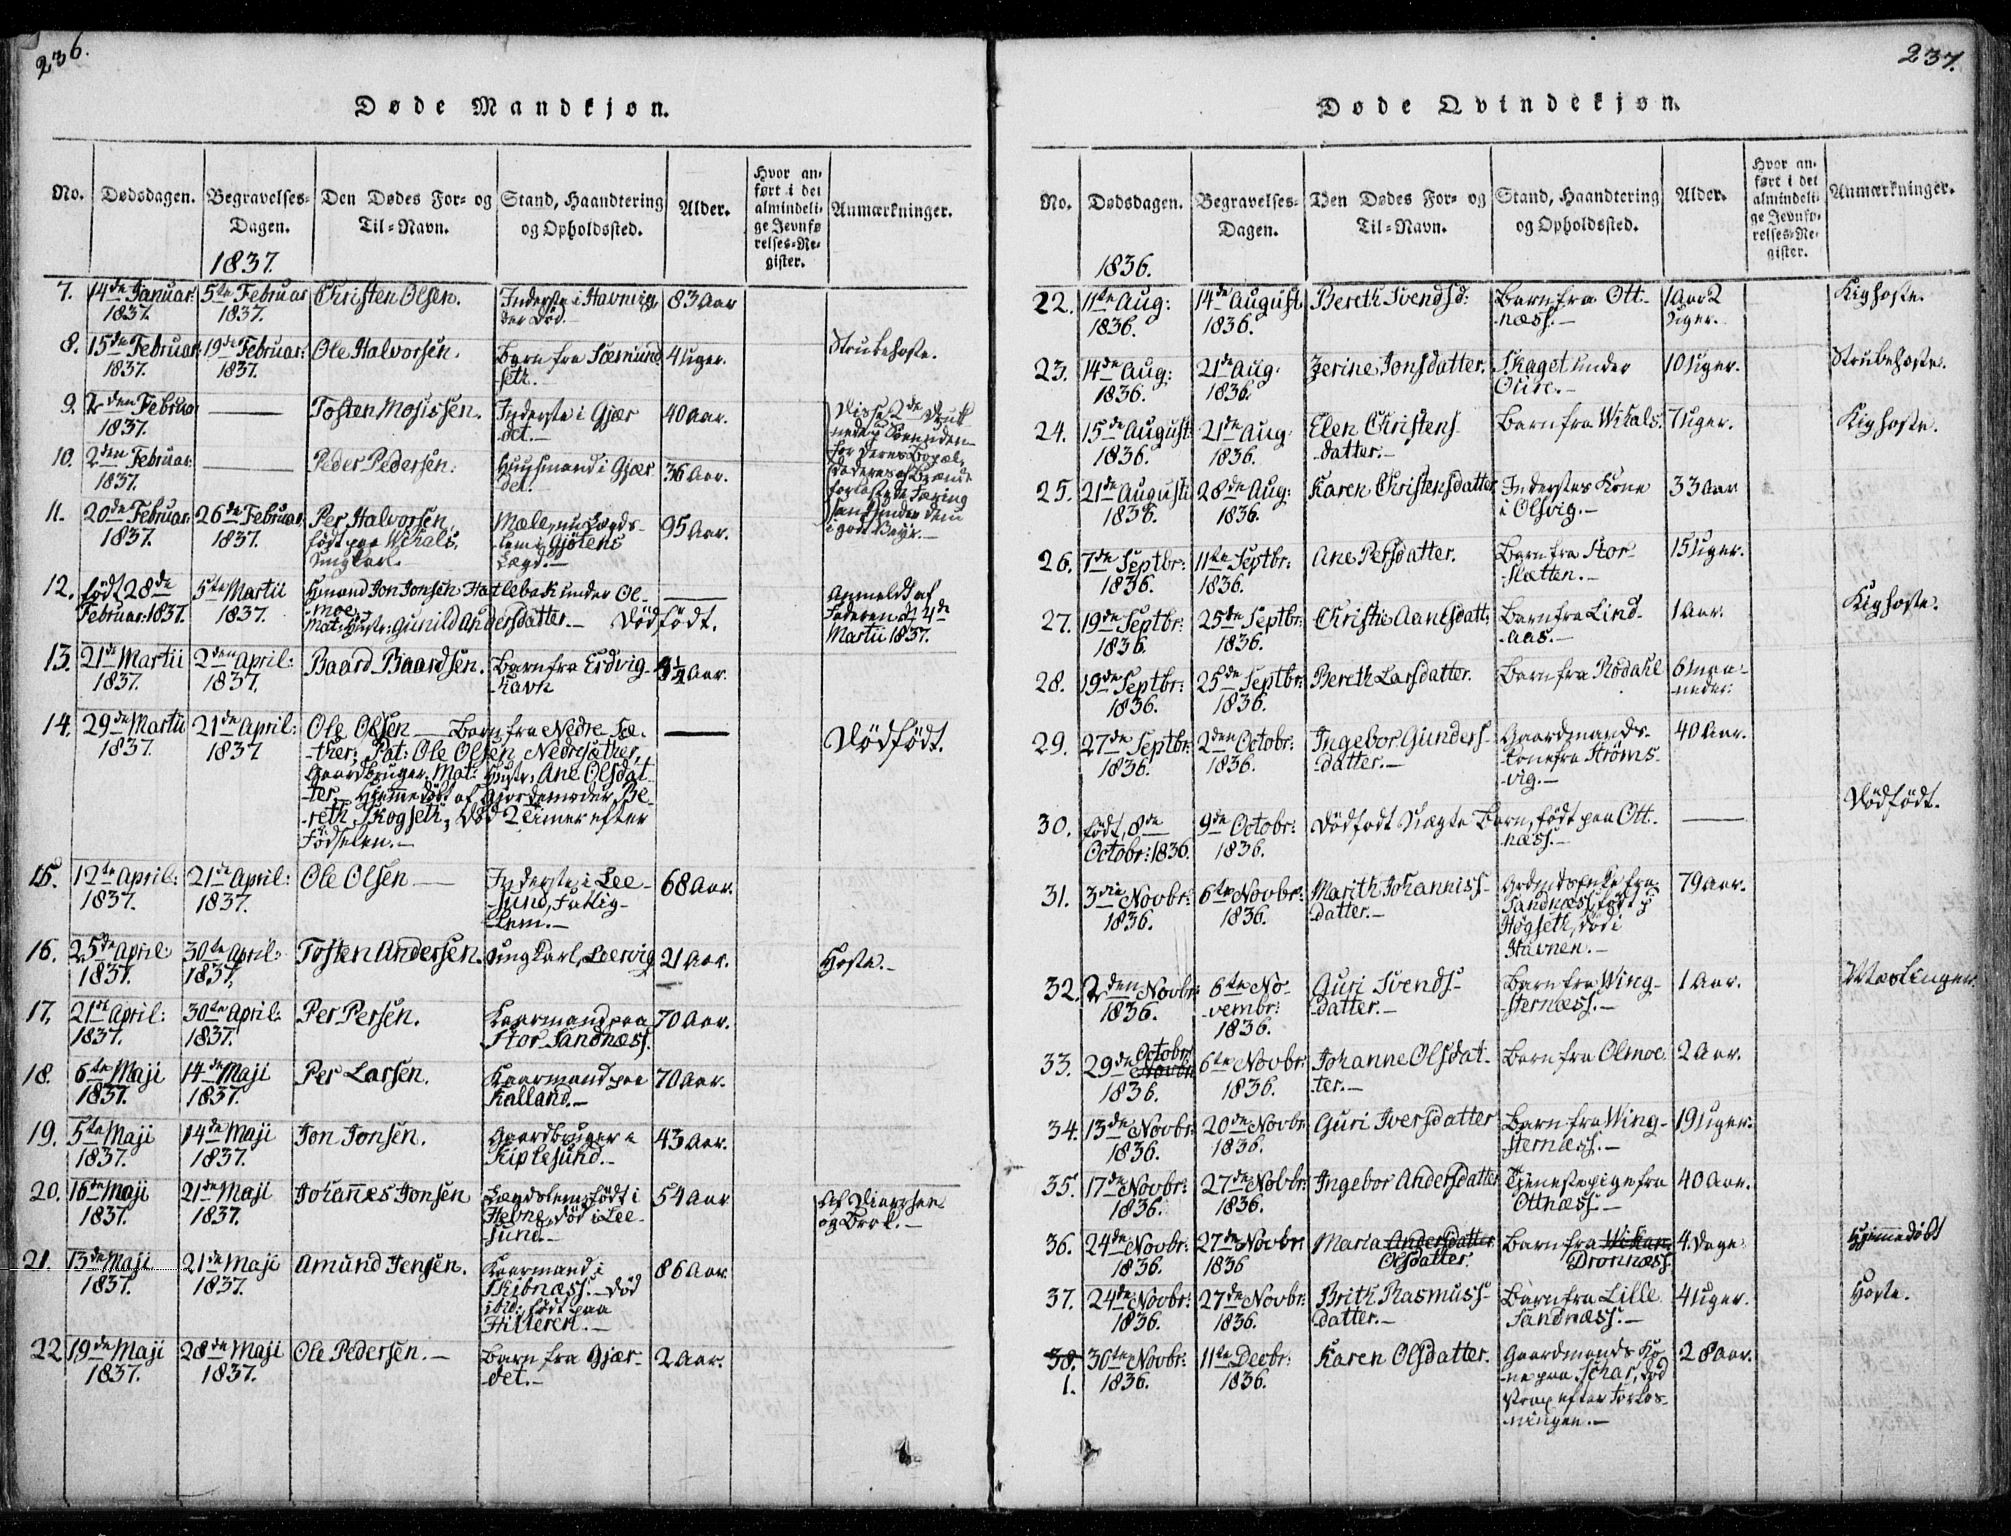 236.
Døde Mandkjøn.
No. Dødsdagen. Begravelses-Dagen. Den Dødes For- og Til-Navn. Stand, Haandtering og Opholdssted. Alder. Hvor anført i det almindelige Jevnførelses-Register. Anmærkninger.
1837.
7. 14de Januar: 1837. 5te Februar 1837. Christen Olsen. Inderste i Havnvig, der død. 83 Aar
8. 15de Februar: 1837. 19de Februar: 1837. Ole Halvorsen. Barn fra Sæmundseth. 4 Uger. Strubehoste.
9. 2den Februar 1837. — Tosten Mosissen. Inderste i Gjærdet.— 40 Aar.
10. 2den Februar: 1837. — Peder Pedersen. Huusmand i Gjærdet. 36 Aar.
11. 20de Februar: 1837. 26de Februar: 1837. Per Halvorsen, født paa Wikals, Ungkar.— 95 Aar.
12. født 28de Februar: 1837. 5te Martii 1837. Huusmand Jon Jonsen Hatlebak under Olmoe.
Mat: Hustr: Gunild Andersdatter.— Dødfødt.
Anmeldt af Faderen d. 4de Martii 1837.
13. 21de Martii 1837. 2den April: 1837. Baard Baardsen. Barn fra Erdvighavn Aar.
14. 29de Martii 1837. 21de April: 1837 Ole Olsen — Barn fra Nedre Sæ-
-ther; Pat: Ole Olsen Nedresæther,
Gaardbruger, Mat: Hustr: Ane Olsdat-
-ter. Hjemmedøbt af Gjordemoder Be-
-reth Skogseth, død 2 Timer efter
Fødselen.—
Dødfødt.
15. 12te April: 1837. 21de April: 1837. Ole Olsen — Inderste i Leesund, Fattiglem.— 68 Aar.
16. 25de April 1837. 30te April: 1837. Tosten Andersen. Ungkarl, Leervig 21 Aar. Hoste.—
17. 21de April: 1837. 30te April: 1837. Per Persen. Kaarmand paa Stor Sandnæss. 70 Aar.
18. 6te Maji 1837. 14de Maji 1837. Per Larsen. Kaarmand paa Kalland.— 70 Aar.
19. 5te Maji 1837. 14de Maji 1837. Jon Jonsen. Gaardbruger i Kiplesund.— 43 Aar.
20. 16de Maji 1837. 21de Maji 1837. Johannes Jonsen Lægdslem, født i Hevne, død i Leesund.— 54 Aar og Brok.—
21. 13de Maji 1837. 21de Maji 1837. Amund Jensen. Kaarmand i Skibnæss.— Død født paa Hitteren.— 86 Aar.
22 19de Maji 1837. 28de Maji 1837. Ole Pedersen.— Barn fra Gjærdet.— 2 Aar.
237.
Døde Qvindekjøn.
No. Dødsdagen. Begravelses-Dagen. Den Dødes For- og Til-Navn. Stand, Haandtering og Opholdssted. Alder. Hvor anført i det almindelige Jevnførelses-Register. Anmærkninger.
1836.
22. 11te Aug: 1836. 14de August 1836. Bereth Svendsd: Barn fra Ottnæss.— 1 Aar 2 Uger. Kighoste.
23. 14de Aug: 1836. 21de Aug. 1836. Zerine Jonsdatter. Skaget under 10 Uger. Strubehoste.
24. 15de August: 1836. 21de Aug. 1836. Elen Christensdatter. Barn fra Wikals. 7 Uger. Kighoste.
25. 21de August: 1836. 28de Aug: 1836. Karen Christensdatter Inderstes Kone i Olsvig.— 33 Aar
26. 7de Septbr: 1836. 11te Septbr: 1836. Ane Persdatter. Barn fra Storslætten.— 15 Uger.
27. 19de Septbr: 1836. 25de Septbr: 1836. Christie Aanesdatt: Barn fra Lindaas.— 1 Aar. Kighoste.
28. 19de Septbr: 1836. 25de Septbr: 1836. Bereth Larsdatter. Barn fra Rodahl 6 Maaneder.
29. 27de Septbr: 1836. 2den Octobr: 1836. Ingebor Gundersdatter.— Gaardmandskone fra Strømsvig.— 40 Aar.
30. født, 8de Octobr: 1836. 9de Octobr: 1836. Dødfødt Uægte Barn, født paa Ottnæss.— — Dødfødt.
31. 3die Novbr: 1836. 6te Novbr: 1836. Marith Johannissdatter.— Grdmdsenke fra Sandnæss, født p Høgseth, død i Havnen.— 79 Aar.
32. 2den Novbr: 1836. 6te Novembr: 1836. Guri Svendsdatter.— Barn fra Wingsternæss.— 1 Aar. Mæslinger.
33. 29de Octobr: Novbr: 1836. 6te Novbr: 1836. Johanne Olsdatter.— Barn fra Olmoe. 2 Aar.
34. 13de Novbr: 1836. 20de Novbr 1836. Guri Iversdatter Barn fra Wingsternæss.— 19 Uger.
35. 17de Novbr: 1836. 27de Novbr: 1836. Ingebor Andersdatter Tienestepige fra Ottnæss.— 40 Aar.
36. 24de Novbr: 1836. 27de Novbr: 1836 Maria Andersdatter Olsdatter. Barn fra Wikan Dronnæss. 4 Dage. Hjemmedøbt
37. 24de Novbr: 1836. 27de Novbr: 1836. Brith Rasmussdatter.— Barn fra Lille Sandnæss.— 4 Uger. Hoste.
38. 1. 30te Novbr: 1836. 11te Decbr: 1836. Karen Olsdatter. Gaardmands Kone paa død strax efter Forløsningen.— 28 Aar.